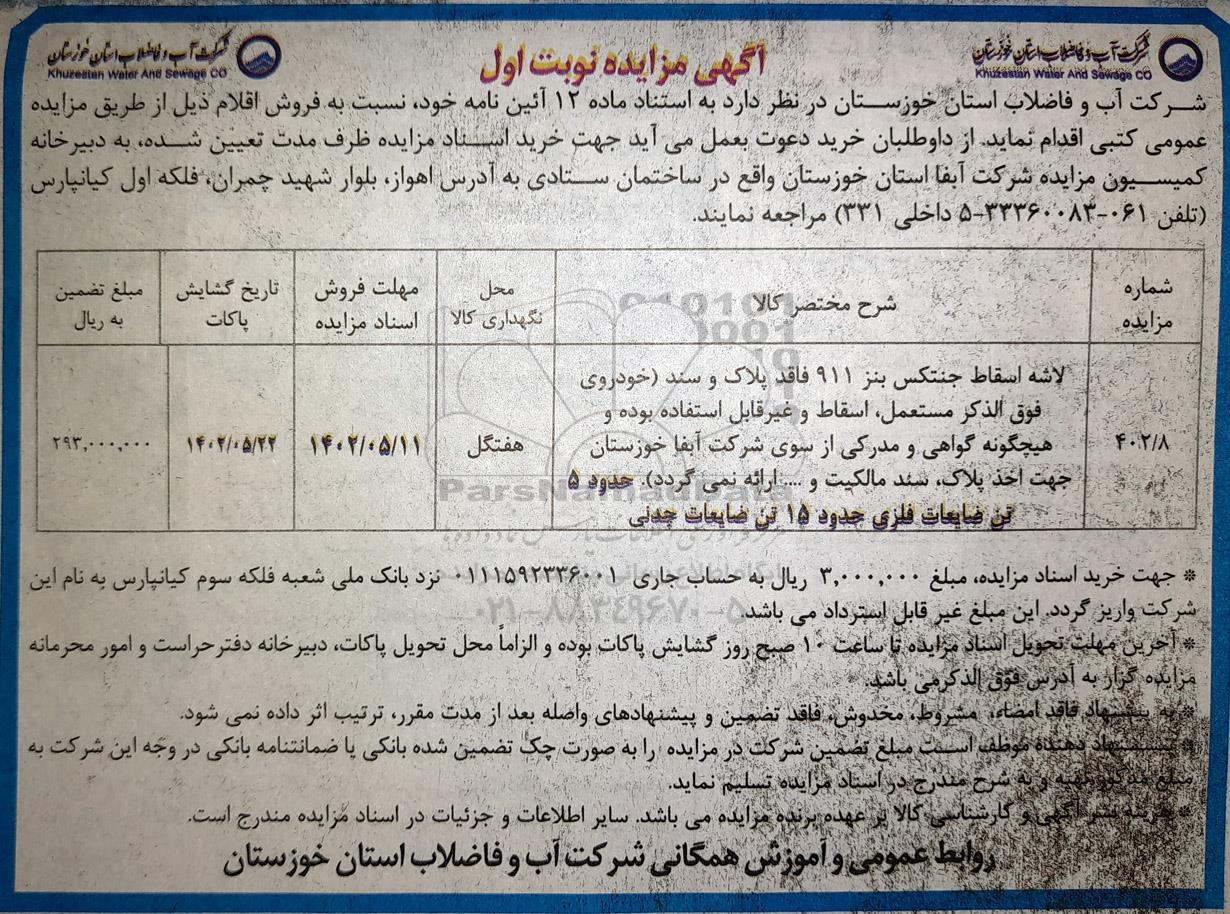 شرکت آب و فاضلاب استان خوزستان
Khuzestan Water And Sewage CO
آگهی مزایده نوبت اول
شرکت آب و فاضلاب استان خوزستان
Khuzestan Water And Sewage CO
شرکت آب و فاضلاب استان خوزستان در نظر دارد به استناد ماده ۱۲ آئین نامه خود، نسبت به فروش اقلام ذیل از طریق مزایده
عمومی کتبی اقدام نماید. از داوطلبان خرید دعوت بعمل می آید جهت خرید اسناد مزایده ظرف مدت تعیین شده، به دبیرخانه
کمیسیون مزایده شرکت آبفا استان خوزستان واقع در ساختمان ستادی به آدرس اهواز، بلوار شهید چمران، فلکه اول کیانپارس
(تلفن ۰۶۱-۳۳۳۶۰۰۸۳-۵ داخلی ۳۳۱) مراجعه نمایند.
شماره مزایده
شرح مختصر کالا
محل نگهداری کالا
مهلت فروش اسناد مزایده
تاریخ گشایش پاکات
مبلغ تضمین به ریال
۴۰۲/۸
لاشه اسقاط جنتکس بنز ۹۱۱ فاقد پلاک و سند (خودروی
فوق الذکر مستعمل، اسقاط و غیرقابل استفاده بوده و
هیچگونه گواهی و مدرکی از سوی شرکت آبفا خوزستان
جهت اخذ پلاک، سند مالکیت و .... ارائه نمی گردد). حدود ۵
تن ضایعات فلزی حدود ۱۵ تن ضایعات چدنی
هفتگل
۱۴۰۲/۰۵/۱۱
۱۴۰۲/۰۵/۲۲
۲۹۳,۰۰۰,۰۰۰
ParsNamadData
۰۲۱-۸۸۳۴۹۶۷۰-۵
* جهت خرید اسناد مزایده، مبلغ ۳,۰۰۰,۰۰۰ ریال به حساب جاری ۰۱۱۱۵۹۲۳۳۶۰۰۱ نزد بانک ملی شعبه فلکه سوم کیانپارس به نام این
شرکت واریز گردد. این مبلغ غیر قابل استرداد می باشد.
* آخرین مهلت تحویل اسناد مزایده تا ساعت ۱۰ صبح روز گشایش پاکات بوده و الزاماً محل تحویل پاکات، دبیرخانه دفترحراست و امور محرمانه
مزایده گزار به آدرس فوق الذکرمی باشد.
* به پیشنهاد فاقد امضاء، مشروط، مخدوش، فاقد تضمین و پیشنهادهای واصله بعد از مدت مقرر، ترتیب اثر داده نمی شود.
* پیشنهاد دهنده موظف است مبلغ تضمین شرکت در مزایده را به صورت چک تضمین شده بانکی یا ضمانتنامه بانکی در وجه این شرکت به
مبلغ مذکور تهیه و به شرح مندرج در اسناد مزایده تسلیم نماید.
* هزینه نشر آگهی و کارشناسی کالا بر عهده برنده مزایده می باشد. سایر اطلاعات و جزئیات در اسناد مزایده مندرج است.
روابط عمومی و آموزش همگانی شرکت آب و فاضلاب استان خوزستان